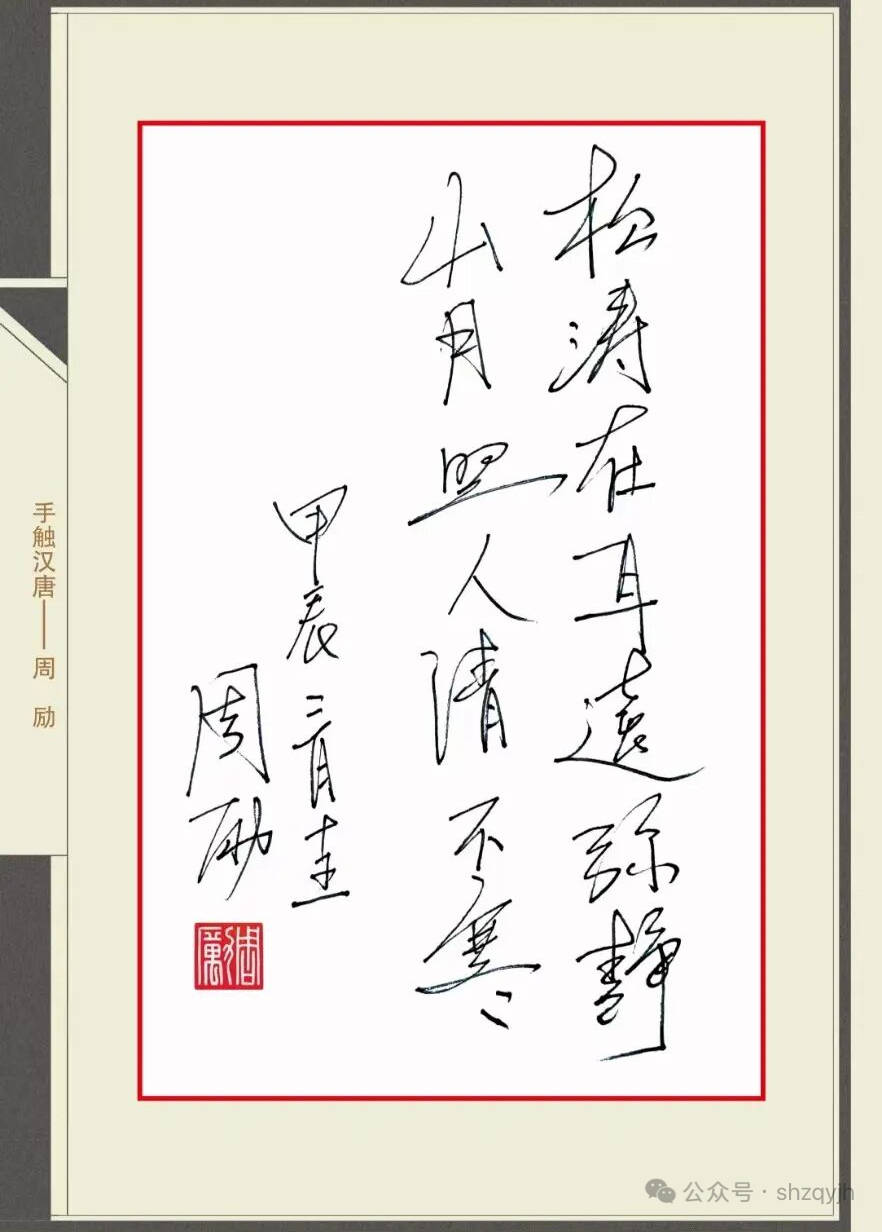 松涛在耳遠弥静
山月照人清不寒
甲辰三月書
周励
周勵
手触汉唐——周 励
公众号 · shzqyjh